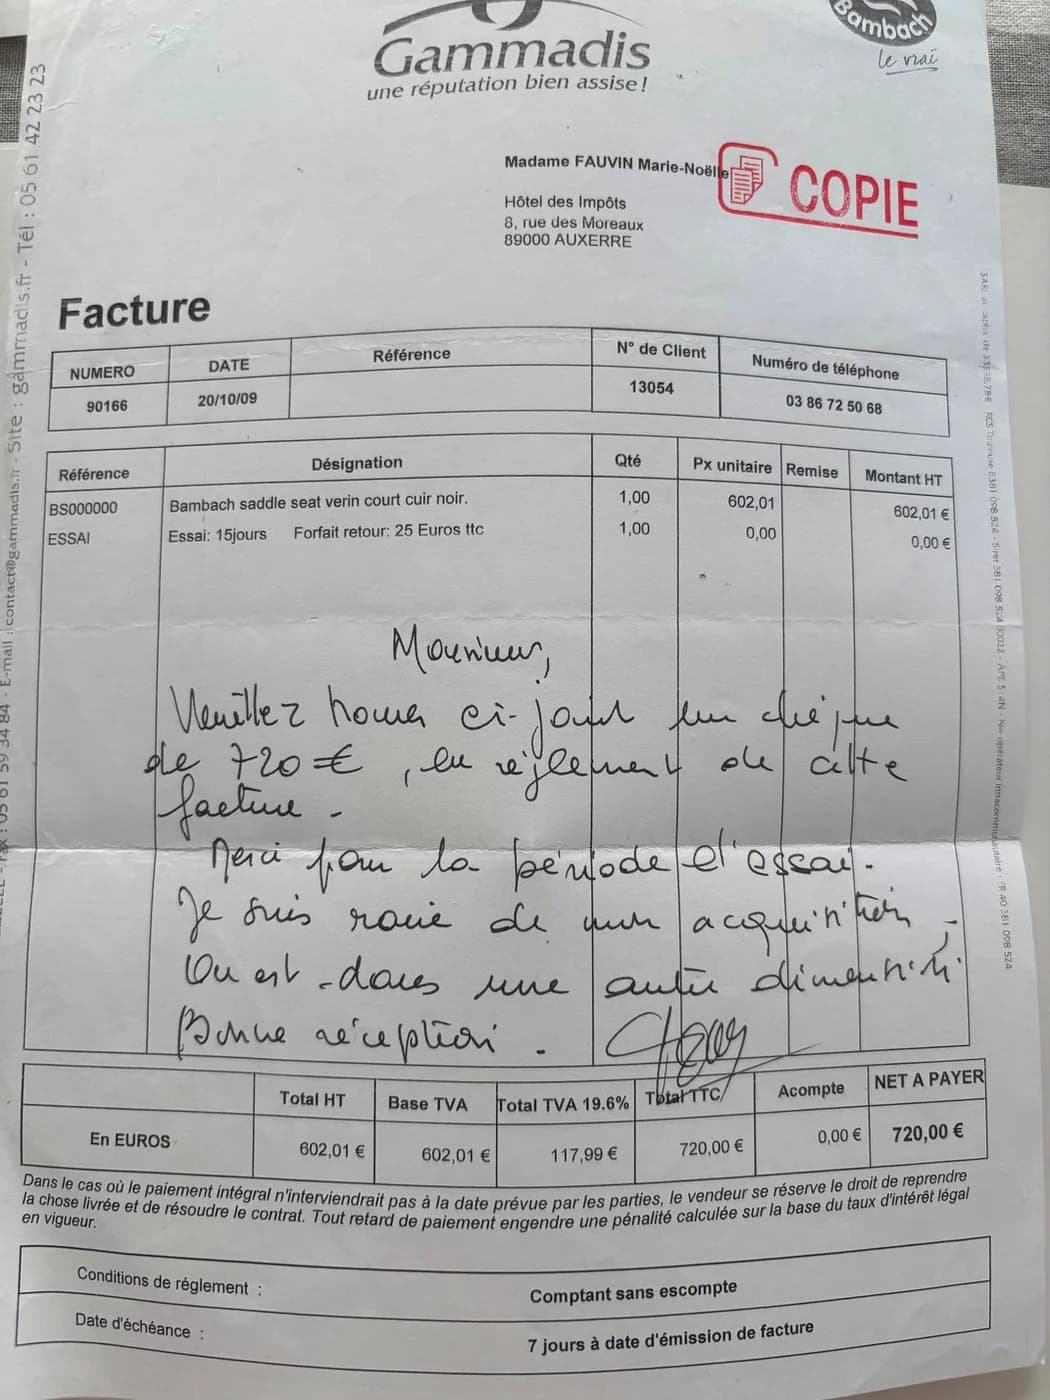 Gammadis
une réputation bien assise!
Bambach
le vrai
Madame FAUVIN Marie-Noëlle
COPIE
Hôtel des Impôts
8, rue des Moreaux
89000 AUXERRE
Facture
NUMERO DATE Référence N° de Client Numéro de téléphone
90166 20/10/09 13054 03 86 72 50 68
Référence Désignation Qté Px unitaire Remise Montant HT
BS000000 Bambach saddle seat verin court cuir noir. 1,00 602,01 602,01 €
ESSAI Essai: 15jours Forfait retour: 25 Euros ttc 1,00 0,00 0,00 €
Monsieur,
Veuillez trouver ci-joint un chèque
de 720 €, en règlement de cette
facture.
Merci pour la période d'essai.
Je suis ravie de mon acquisition.
On est dans une autre dimension.
Bonne réception.
Total HT Base TVA Total TVA 19.6% Total TTC Acompte NET A PAYER
En EUROS 602,01 € 602,01 € 117,99 € 720,00 € 0,00 € 720,00 €
Dans le cas où le paiement intégral n'interviendrait pas à la date prévue par les parties, le vendeur se réserve le droit de reprendre
la chose livrée et de résoudre le contrat. Tout retard de paiement engendre une pénalité calculée sur la base du taux d'intérêt légal
en vigueur.
Conditions de réglement : Comptant sans escompte
Date d'échéance : 7 jours à date d'émission de facture
Fax : 05 61 59 34 84 - E-mail : contact@gammadis.fr - Site : gammadis.fr - Tél : 05 61 42 23 23
SARL au capital de - RCS Toulouse B381 098 524 - Siret 381 098 524 00022 - APE 514N - N° opérateur intracommunautaire : FR 40 381 098 524